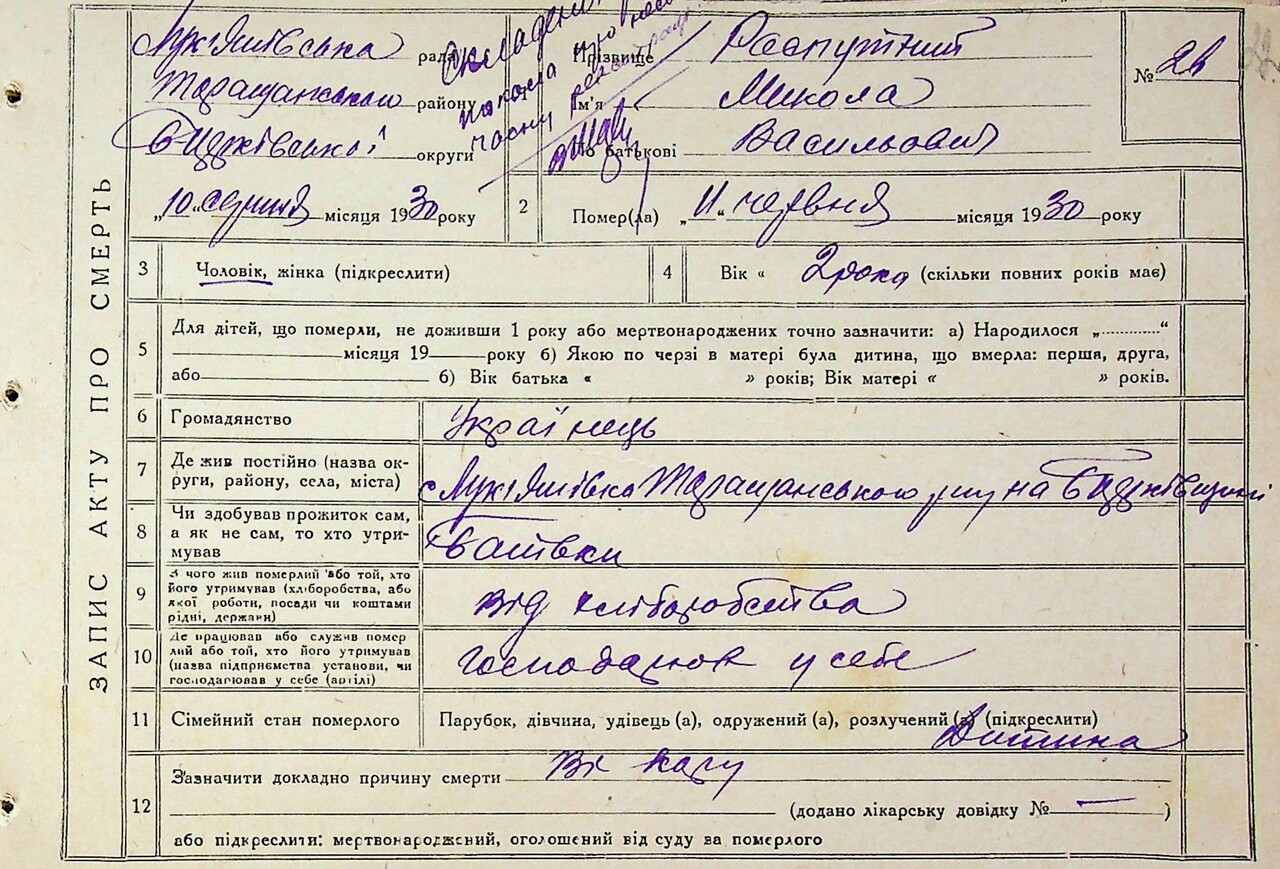 ЗАПИС АКТУ ПРО СМЕРТЬ
Лук'янівська рада
Таращанського району
Б/Церківської округи
„10“ серпня місяця 1930 року
Складено
Прізвище Распутній
Ім'я Микола
По батькові Васильович
№ 24
2 Помер(ла) „11“ червня місяця 1930 року
3 Чоловік, жінка (підкреслити)
4 Вік « 2 рока (скільки повних років має)
5 Для дітей, що померли, не доживши 1 року або мертвонароджених точно зазначити: а) Народилося „............“
місяця 19 року б) Якою по черзі в матері була дитина, що вмерла: перша, друга,
або б) Вік батька « » років; Вік матері « » років.
6 Громадянство Українець
7 Де жив постійно (назва ок-
руги, району, села, міста)
с Лук'янівка Таращанського р-ну на Б/Церківщині
8 Чи здобував прожиток сам,
а як не сам, то хто утри-
мував
Батьки
9 З чого жив померлий або той, хто
його утримував (хліборобства, або
якої роботи, посади чи коштами
рідні, держави)
від хліборобства
10 Де працював або служив помер
лий або той, хто його утримував
(назва підприємства установи, чи
господарював у себе (артілі)
господарював у себе
11 Сімейний стан померлого Парубок, дівчина, удівець (а), одружений (а), розлучений (а) (підкреслити)
Дитина
12 Зазначити докладно причину смерти
(додано лікарську довідку № — )
або підкреслити: мертвонароджений, оголошений від суду за померлого